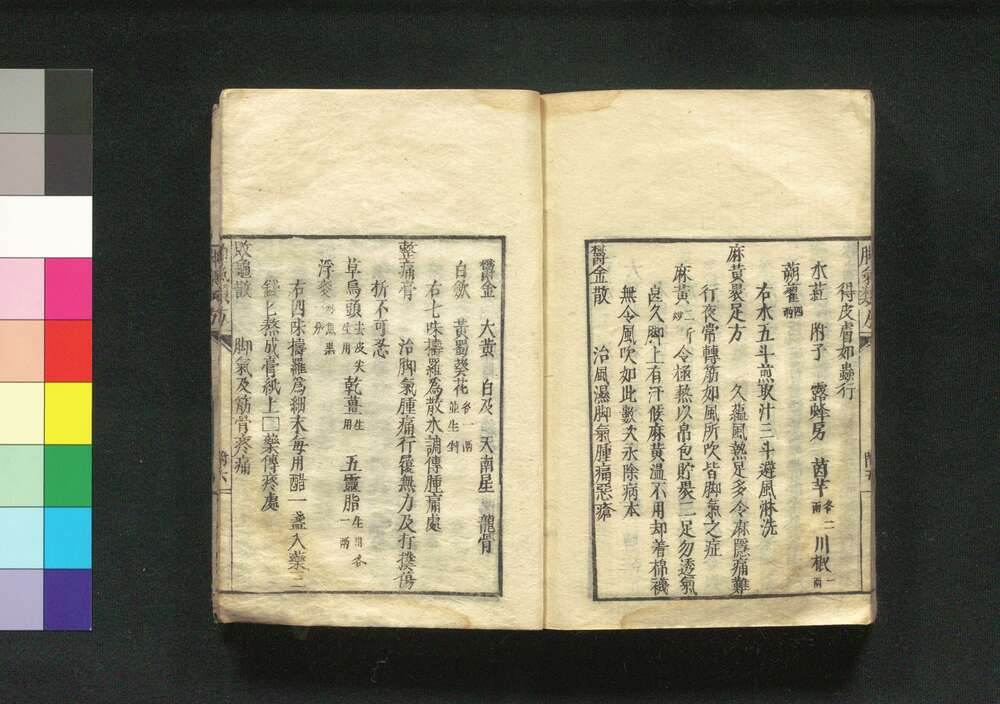 得皮膚如蟲行
水葒 附子 露蜂房 茵芋各二兩 川椒一兩
蒴藋四兩
右水五斗煎取汁三斗避風淋洗
麻黃裹足方 久蘊風熱足多令麻隱痛難
行夜常轉筋如風所吹皆脚氣之症
麻黃二斤炒 令極熱以帛包貯裹二足勿透氣
良久脚上有汗候麻黃溫不用却着棉襪
無令風吹如此數次永除病本
鬱金散 治風濕脚氣腫痛惡瘡
鬱金 大黃 白及 天南星 龍骨
白歛 黃蜀葵花各一兩並生剉
右七味擣羅為散水調傅腫痛處
整痛膏 治脚氣腫痛行履無力及有損傷
折不可忍
草烏頭去皮尖生用 乾薑生用 五靈脂生用各一兩
浮麥
右四味擣羅為細末每用醋一盞入藥二
錢匕熬成膏紙上□藥傅疼處
敗龜散 脚氣及筋骨疼痛